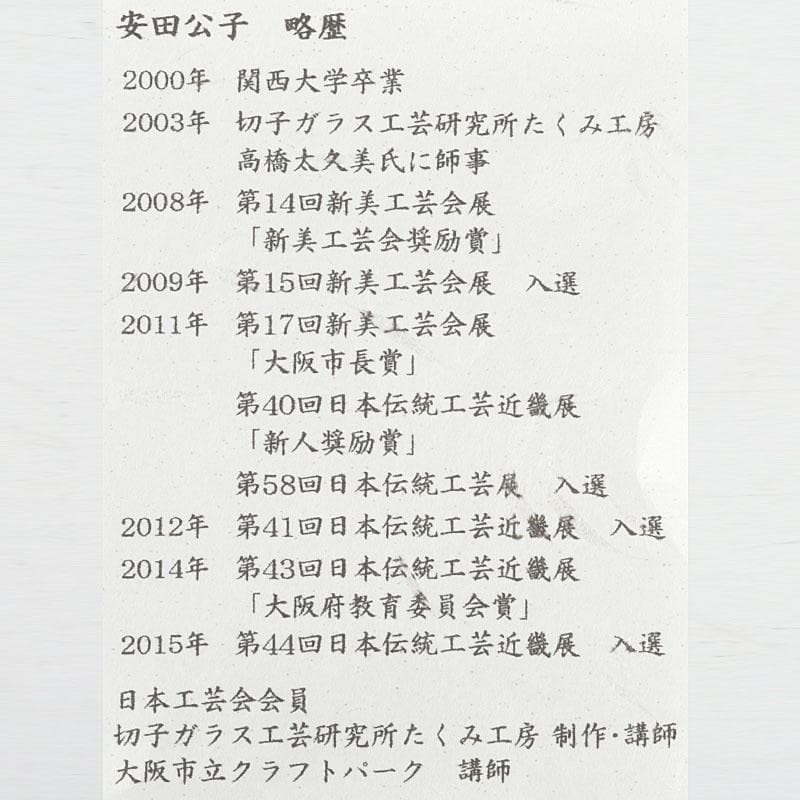 安田公子　略歴
2000年　関西大学卒業
2003年　切子ガラス工芸研究所たくみ工房
高橋太久美氏に師事
2008年　第14回新美工芸会展
「新美工芸会奨励賞」
2009年　第15回新美工芸会展　入選
2011年　第17回新美工芸会展
「大阪市長賞」
第40回日本伝統工芸近畿展
「新人奨励賞」
第58回日本伝統工芸展　入選
2012年　第41回日本伝統工芸近畿展　入選
2014年　第43回日本伝統工芸近畿展
「大阪府教育委員会賞」
2015年　第44回日本伝統工芸近畿展　入選
日本工芸会会員
切子ガラス工芸研究所たくみ工房 制作・講師
大阪市立クラフトパーク　講師